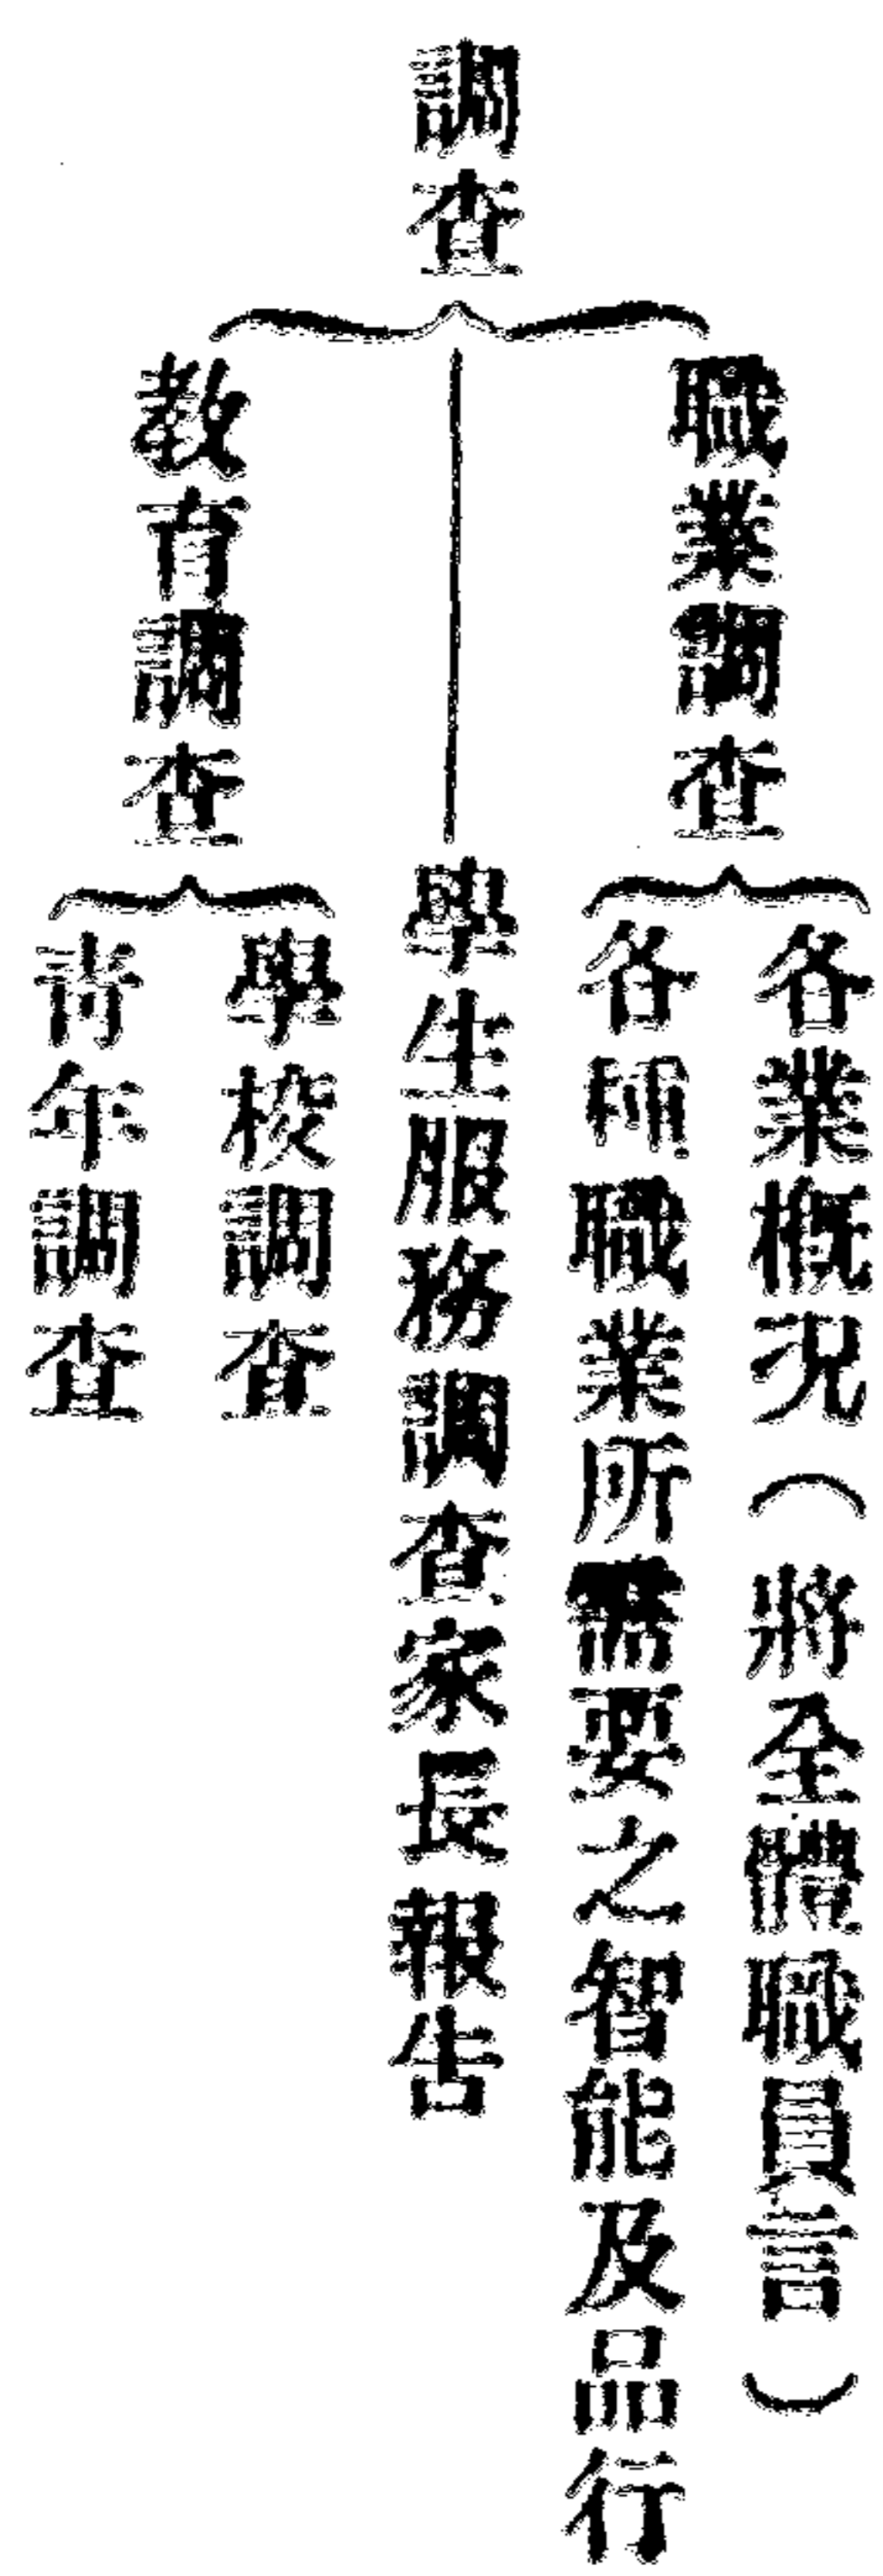 調查
職業調查
各業概況（將全體職員言）
各種職業所需要之智能及品行
學生服務調查家長報告
教育調查
學校調查
靑年調查